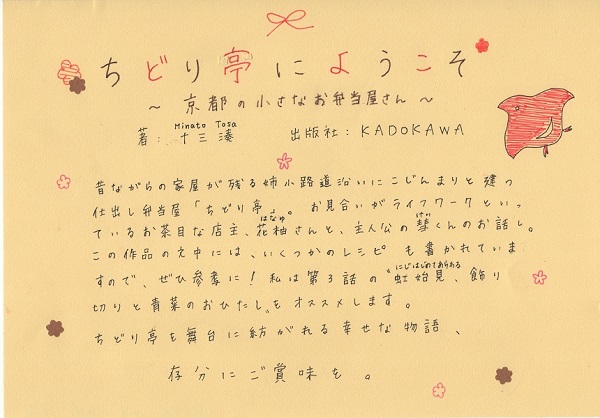 ちどり亭にようこそ
～ 京都の小さなお弁当屋さん ～
Minato Tosa
著：十三湊 出版社：KADOKAWA
昔ながらの家屋が残る姉小路道沿いにこじんまりと建つ
仕出し弁当屋「ちどり亭」。お見合いがライフワークといっ
ているお茶目な店主、花柚さんと、主人公の彗くんのお話し。
はなゆ けい
この作品の文中には、いくつかのレシピも書かれていま
すので、ぜひ参考に！私は第3話の“虹始見、飾り
にじはじめてあらわる
切りと青菜のおひたし”をオススメします。
ちどり亭を舞台に紡がれる幸せな物語、
存分にご賞味を。